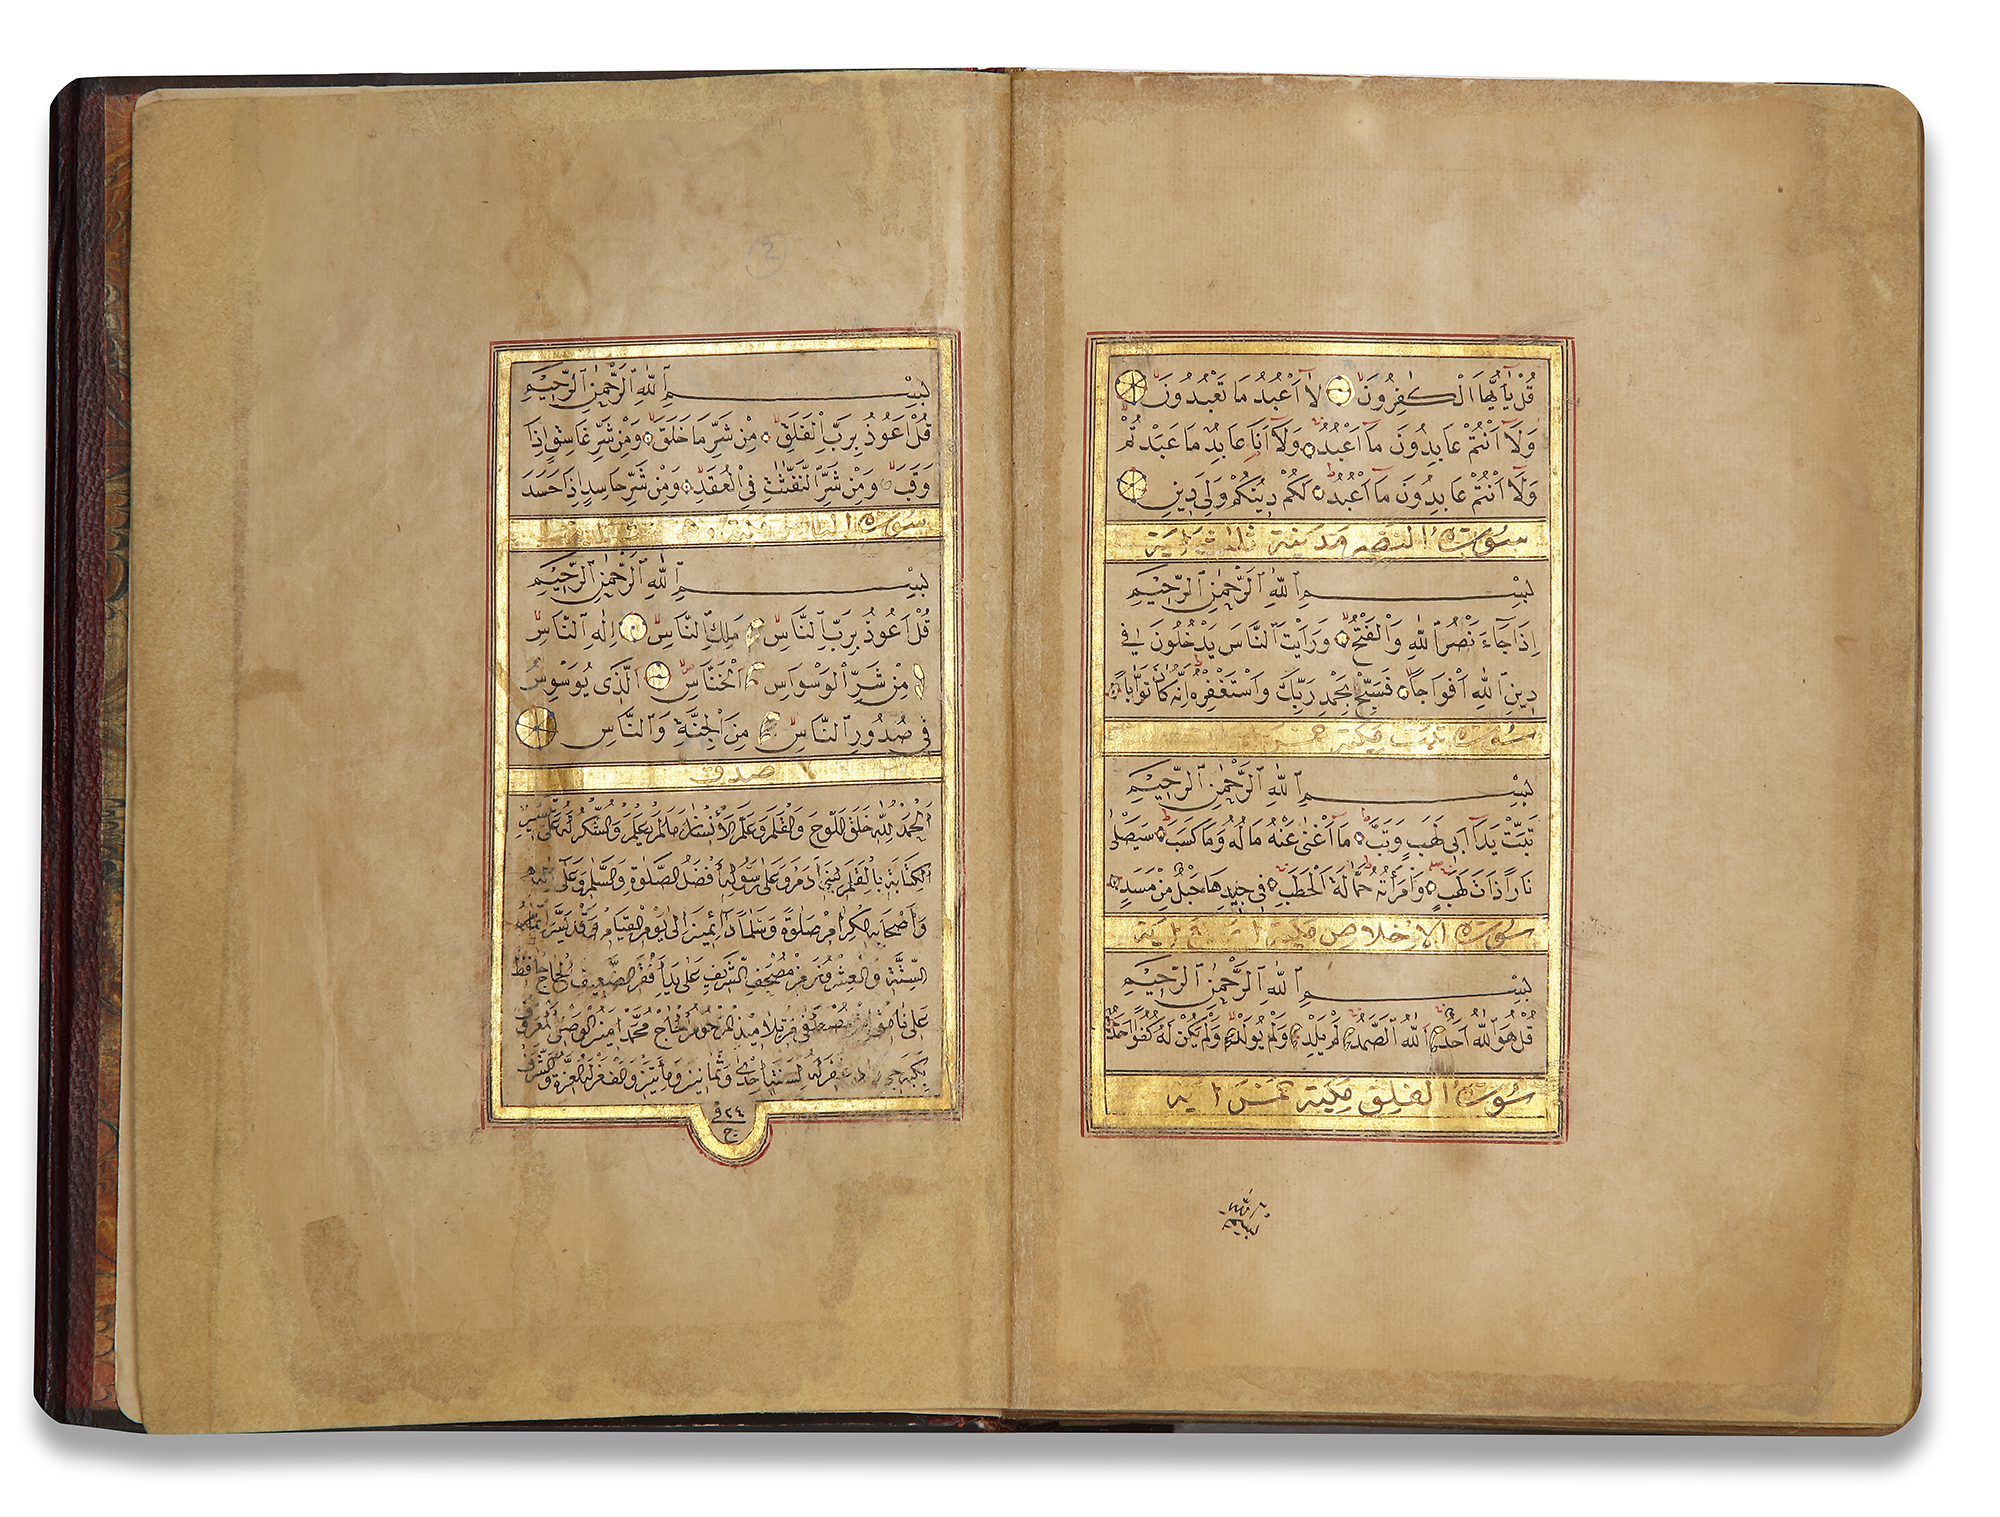 قُلْ يَا أَيُّهَا الْكَافِرُونَ لَا أَعْبُدُ مَا تَعْبُدُونَ
وَلَا أَنْتُمْ عَابِدُونَ مَا أَعْبُدُ وَلَا أَنَا عَابِدٌ مَا عَبَدْتُمْ
وَلَا أَنْتُمْ عَابِدُونَ مَا أَعْبُدُ لَكُمْ دِينُكُمْ وَلِيَ دِينِ
سورة النصر مدنية ثلاث اية
بِسْمِ اللهِ الرَّحْمٰنِ الرَّحِيمِ
إِذَا جَاءَ نَصْرُ اللهِ وَالْفَتْحُ وَرَأَيْتَ النَّاسَ يَدْخُلُونَ فِي
دِينِ اللهِ أَفْوَاجًا فَسَبِّحْ بِحَمْدِ رَبِّكَ وَاسْتَغْفِرْهُ إِنَّهُ كَانَ تَوَّابًا
سورة تبت مكية خمس
بِسْمِ اللهِ الرَّحْمٰنِ الرَّحِيمِ
تَبَّتْ يَدَا أَبِي لَهَبٍ وَتَبَّ مَا أَغْنَىٰ عَنْهُ مَالُهُ وَمَا كَسَبَ سَيَصْلَىٰ
نَارًا ذَاتَ لَهَبٍ وَامْرَأَتُهُ حَمَّالَةَ الْحَطَبِ فِي جِيدِهَا حَبْلٌ مِنْ مَسَدٍ
سورة الاخلاص مكية اربع اية
بِسْمِ اللهِ الرَّحْمٰنِ الرَّحِيمِ
قُلْ هُوَ اللهُ أَحَدٌ اللهُ الصَّمَدُ لَمْ يَلِدْ وَلَمْ يُولَدْ وَلَمْ يَكُنْ لَهُ كُفُوًا أَحَدٌ
سورة الفلق مكية خمس اية
بِسْمِ اللهِ الرَّحْمٰنِ الرَّحِيمِ
قُلْ أَعُوذُ بِرَبِّ الْفَلَقِ مِنْ شَرِّ مَا خَلَقَ وَمِنْ شَرِّ غَاسِقٍ إِذَا
وَقَبَ وَمِنْ شَرِّ النَّفَّاثَاتِ فِي الْعُقَدِ وَمِنْ شَرِّ حَاسِدٍ إِذَا حَسَدَ
سورة الناس
بِسْمِ اللهِ الرَّحْمٰنِ الرَّحِيمِ
قُلْ أَعُوذُ بِرَبِّ النَّاسِ مَلِكِ النَّاسِ إِلٰهِ النَّاسِ
مِنْ شَرِّ الْوَسْوَاسِ الْخَنَّاسِ الَّذِي يُوَسْوِسُ
فِي صُدُورِ النَّاسِ مِنَ الْجِنَّةِ وَالنَّاسِ
صدق
الْحَمْدُ لِلّٰهِ خَلَقَ اللَّوْحَ وَالْقَلَمَ وَعَلَّمَ الْإِنْسَانَ مَا لَمْ يَعْلَمْ وَالشُّكْرُ لَهُ عَلَىٰ
الْكِتَابَةِ بِالْقَلَمِ لِبَنِي آدَمَ وَعَلَىٰ رَسُولِهِ أَفْضَلُ الصَّلٰوةِ وَالسَّلَامِ وَعَلَىٰ آلِهِ
وَأَصْحَابِهِ الْكِرَامِ صَلٰوةً وَسَلَامًا دَائِمَيْنِ إِلَىٰ يَوْمِ الْقِيَامِ وَقَدْ يَسَّرَ
مُصْحَفِ الشَّرِيفِ عَلَىٰ يَدِ أَفْقَرِ الضَّعِيفِ الْحَاجِّ حَافِظْ
عَلِي مِنْ تَلَامِيذِ الْمَرْحُومِ الْحَاجِّ مُحَمَّدْ أَمِين
غَفَرَ لَهُ لِسَنَةِ إِحْدَىٰ وَثَمَانِينَ وَمِأَتَيْنِ وَأَلْفٍ
٢٤